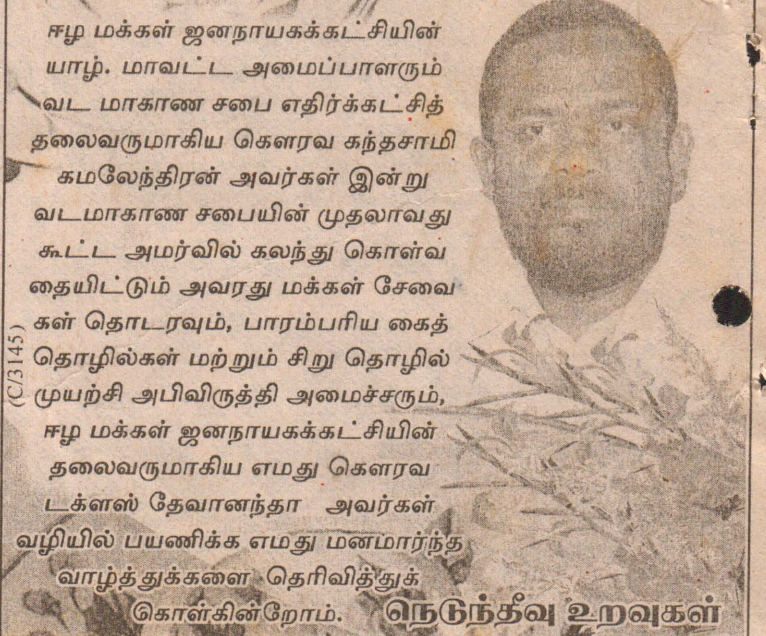 ஈழ மக்கள் ஜனநாயகக்கட்சியின்
யாழ். மாவட்ட அமைப்பாளரும்
வட மாகாண சபை எதிர்க்கட்சித்
தலைவருமாகிய கௌரவ கந்தசாமி
கமலேந்திரன் அவர்கள் இன்று
வடமாகாண சபையின் முதலாவது
கூட்ட அமர்வில் கலந்து கொள்வ
தையிட்டும் அவரது மக்கள் சேவை
கள் தொடரவும், பாரம்பரிய கைத்
தொழில்கள் மற்றும் சிறு தொழில்
முயற்சி அபிவிருத்தி அமைச்சரும்,
ஈழ மக்கள் ஜனநாயகக்கட்சியின்
தலைவருமாகிய எமது கௌரவ
டக்ளஸ் தேவானந்தா அவர்கள்
வழியில் பயணிக்க எமது மனமார்ந்த
வாழ்த்துக்களை தெரிவித்துக்
கொள்கின்றோம். நெடுந்தீவு உறவுகள்
(C/3145)